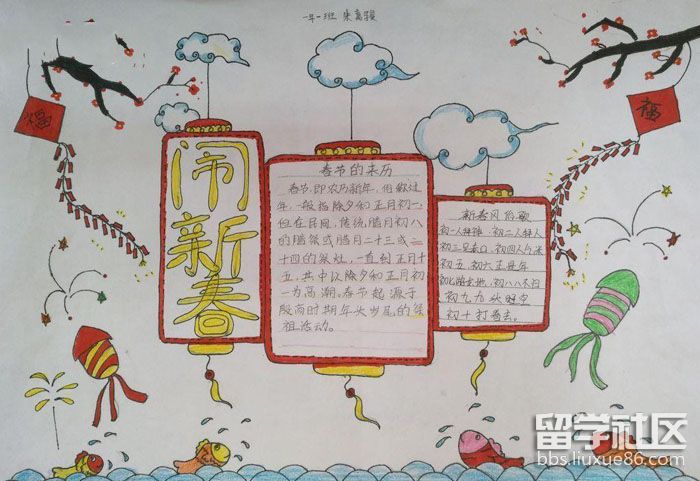 一年一班
福
福
闹新春
春节的来历
春节,即农历新年,俗称过
年,一般指除夕和正月初一.
但在民间,传统腊月初八
的腊祭或腊月二十三或二
十四的祭灶,一直到正月十
五,其中以除夕和正月初
一为高潮。春节起源于
殷商时期年头岁尾的祭
祖活动。
新春风俗歌
初一人拜神,初二人拜人
初三是赤口,初四人乞米
初五初六正是年
初七 初八八不归
初九九 空
初十打春去。
留学社区
bbs.liuxue86.com